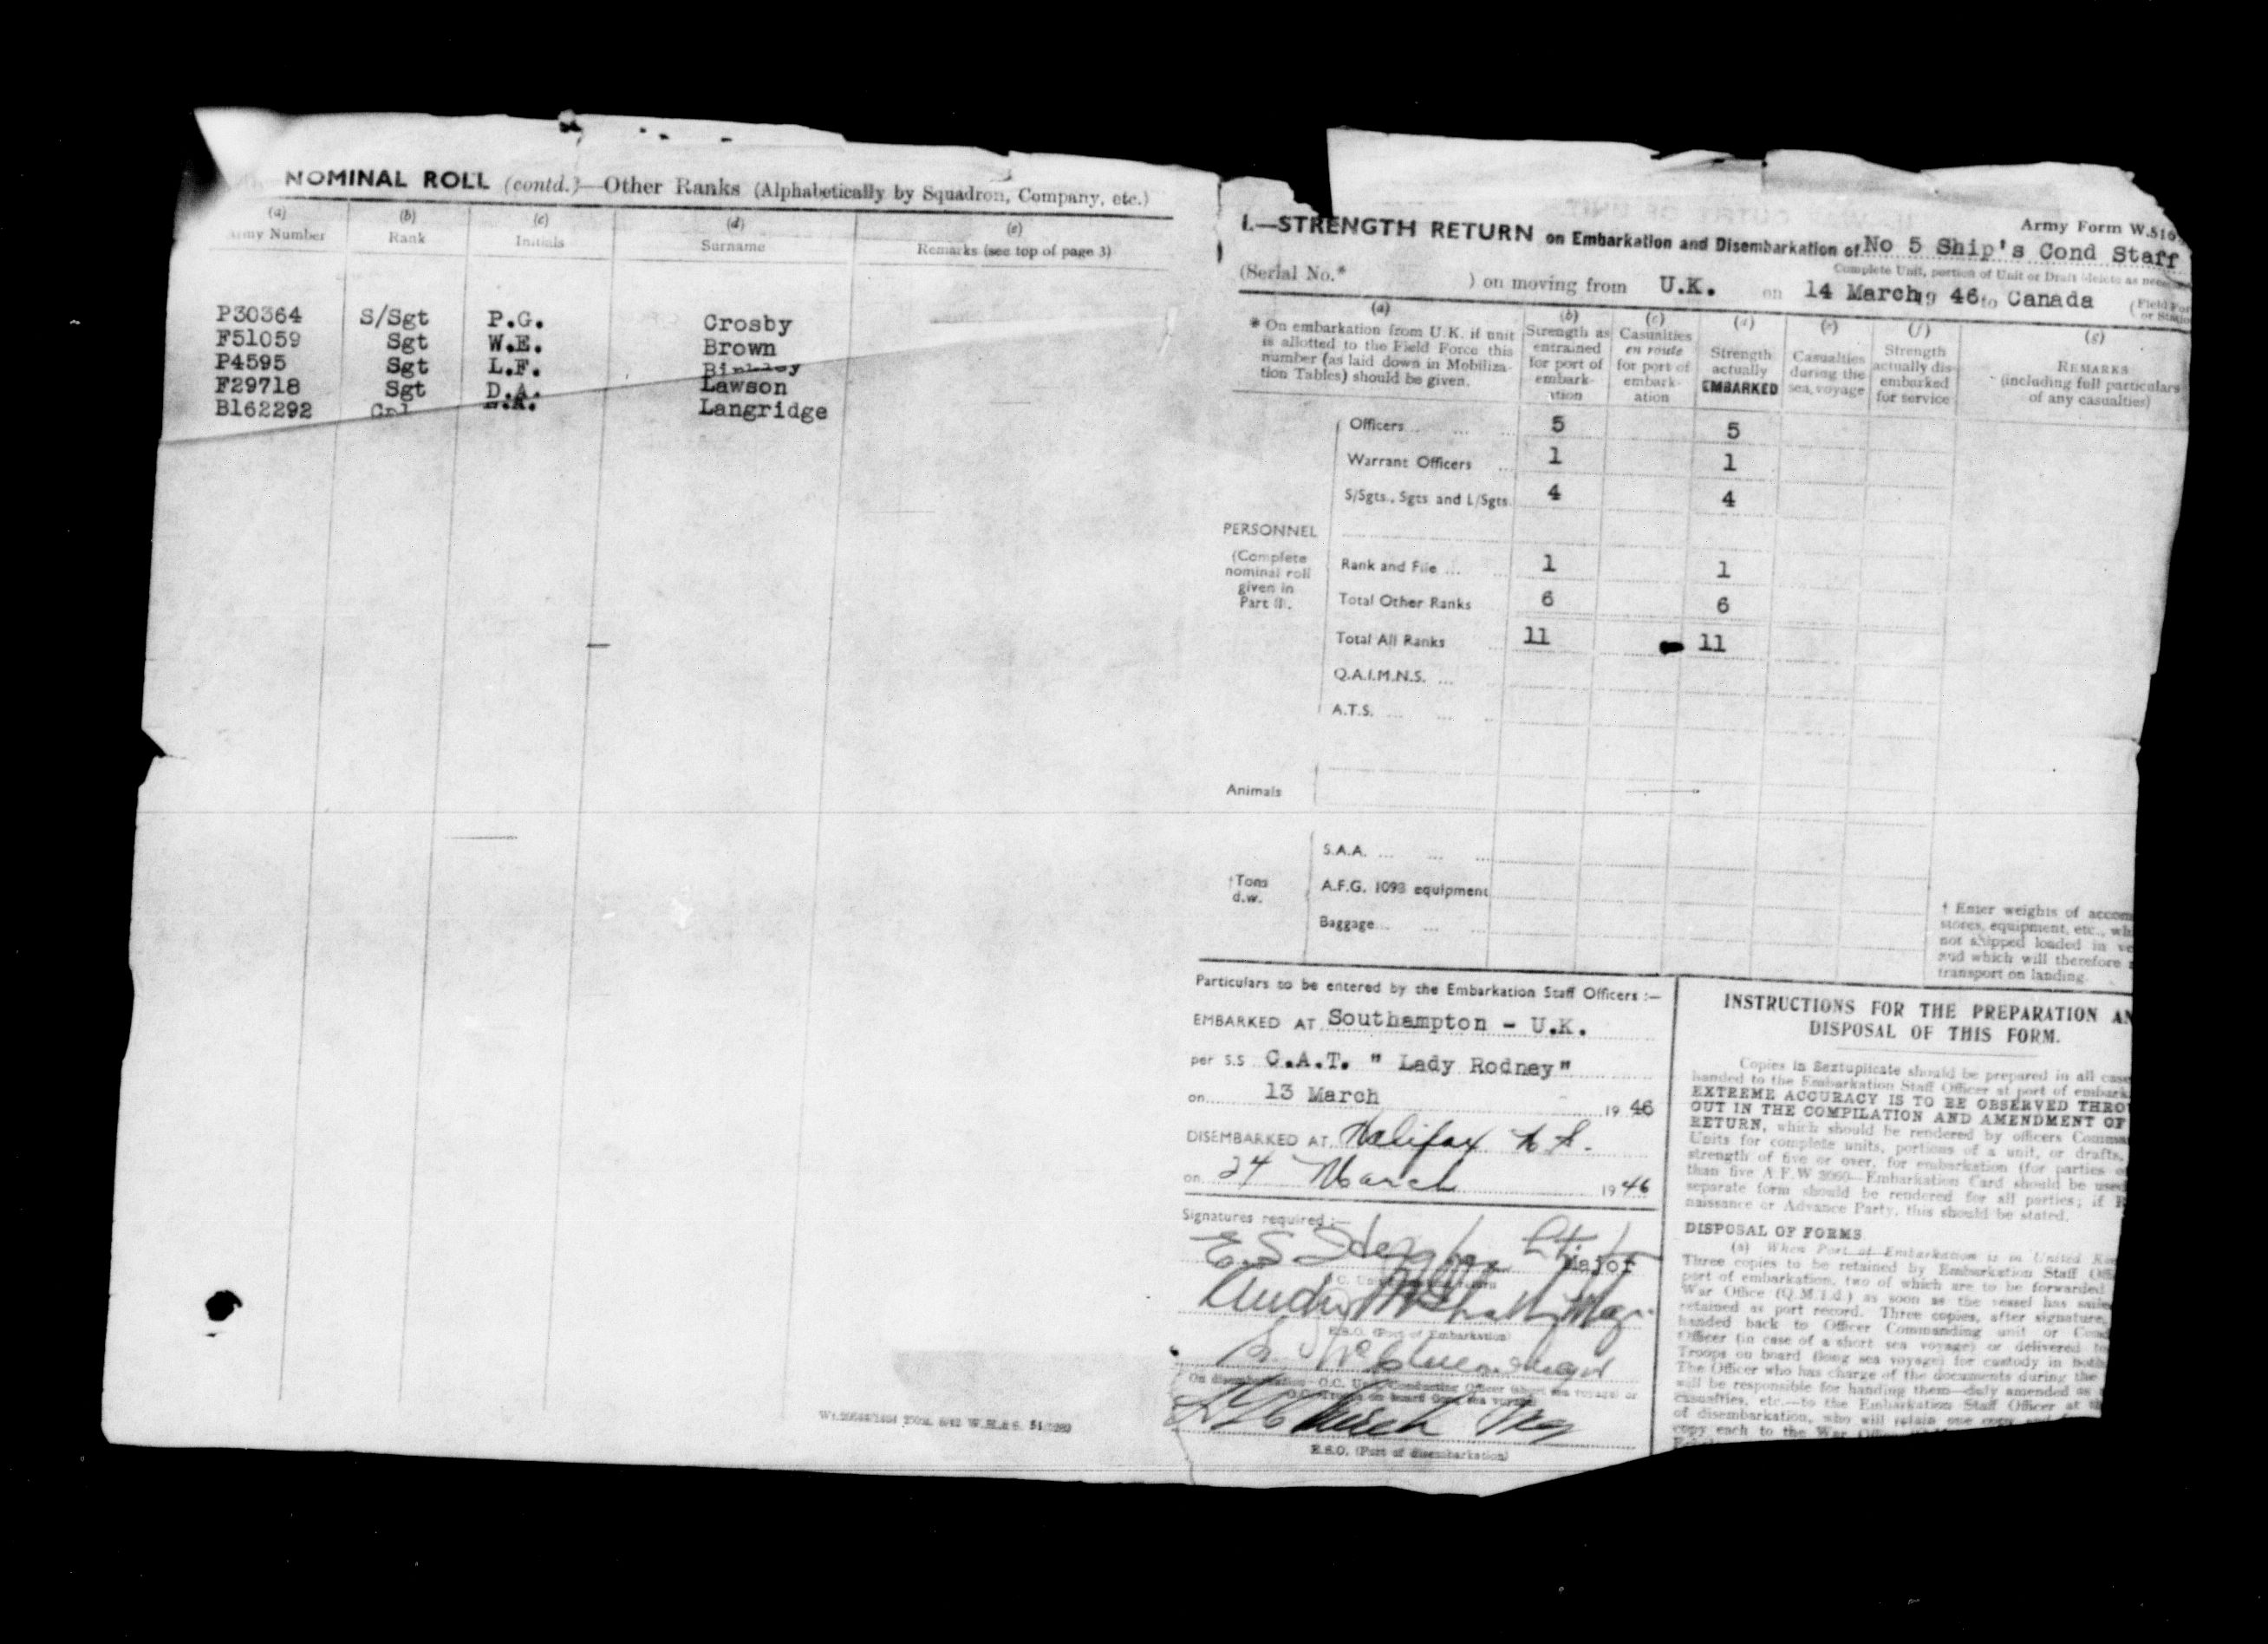 NOMINAL ROLL (contd.)—Other Ranks (Alphabetically by Squadron, Company, etc.)
(a) (b) (c) (d) (e)
Army Number Rank Initials Surname Remarks (see top of page 3)
P30364 S/Sgt P.G. Crosby
F51059 Sgt W.E. Brown
P4595 Sgt L.F.
F29718 Sgt D.A. Lawson
B162292 Cpl Langridge
Army Form W.516
I.—STRENGTH RETURN on Embarkation and Disembarkation of No 5 Ship's Cond Staff
Complete Unit, portion of Unit or Draft (delete as
(Serial No.* ) on moving from U.K. on 14 March 19 46 to Canada (Field
or
(a) (b) (c) (d) (e) (f) (g)
* On embarkation from U.K. if unit
is allotted to the Field Force this
number (as laid down in Mobiliza-
tion Tables) should be given.
Strength as
entrained
for port of
embark-
ation
Casualties
en route
for port of
embark-
ation
Strength
actually
EMBARKED
Casualties
during the
sea voyage
Strength
actually dis-
embarked
for service
REMARKS
(including full particulars
of any casualties)
Officers ... ... ... 5 5
Warrant Officers ... 1 1
S/Sgts., Sgts and L/Sgts. 4 4
PERSONNEL
(Complete
nominal roll
given in
Part II).
Rank and File ... ... 1 1
Total Other Ranks 6 6
Total All Ranks ... 11 11
Q.A.I.M.N.S. ...
A.T.S. ... ... ...
Animals
†Tons
d.w.
S.A.A. ... ... ...
A.F.G. 1098 equipment
Baggage ... ... ...
† Enter weights of
stores, equipment, etc.,
not shipped loaded in
and which will therefore
transport on landing.
Particulars to be entered by the Embarkation Staff Officers :—
EMBARKED AT Southampton - U.K.
per S.S C.A.T. " Lady Rodney"
on 13 March 19 46
DISEMBARKED AT Halifax N.S.
on 24 March 19 46
Signatures required :—
Major
E.S.O. (Port of Embarkation)
On disembarkation—O.C. Unit, Conducting Officer (short sea voyage) or
O.C. Troops on board (long sea voyage)
E.S.O. (Port of disembarkation)
INSTRUCTIONS FOR THE PREPARATION
DISPOSAL OF THIS FORM.
Copies in Sextuplicate should be prepared in all
handed to the Embarkation Staff Officer at port of
EXTREME ACCURACY IS TO BE OBSERVED
OUT IN THE COMPILATION AND AMENDMENT OF
RETURN, which should be rendered by officers
Units for complete units, portions of a unit, or drafts,
strength of five or over, for embarkation (for parties
than five A.F.W 3060—Embarkation Card should be
separate form should be rendered for all parties; if
naissance or Advance Party, this should be stated.
DISPOSAL OF FORMS
(a) When Port of Embarkation is in United
Three copies to be retained by Embarkation Staff
port of embarkation, two of which are to be forwarded
War Office (Q.M.1.d.) as soon as the vessel has
retained as port record. Three copies, after signature,
handed back to Officer Commanding unit or
Officer (in case of a short sea voyage) or delivered
Troops on board (long sea voyage) for custody in
The Officer who has charge of the documents during the
will be responsible for handing them—duly amended as
casualties, etc.—to the Embarkation Staff Officer at
of disembarkation, who will retain one copy and
copy each to the War